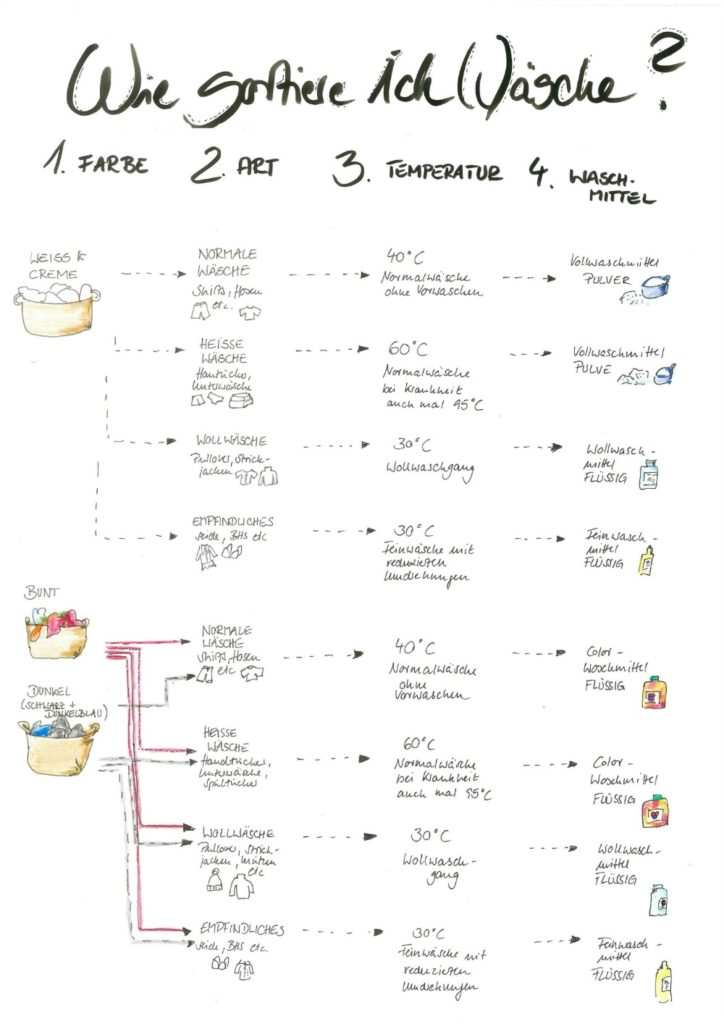 Wie sortiere ich Wäsche?
1. FARBE
2. ART
3. TEMPERATUR
4. WASCH-
MITTEL
WEISS &
CREME
NORMALE
WÄSCHE
Shirts, Hosen
etc.
40°C
Normalwäsche
ohne Vorwaschen
Vollwaschmittel
PULVER
HEISSE
WÄSCHE
Handtücher,
Unterwäsche
60°C
Normalwäsche
bei Krankheit
auch mal 95°C
Vollwaschmittel
PULVE
WOLLWÄSCHE
Pullover, Strick-
jacken
30°C
Wollwaschgang
Wollwasch-
mittel
FLÜSSIG
EMPFINDLICHES
Seide, BHs etc
30°C
Feinwäsche mit
reduzierten
Umdrehungen
Feinwasch-
mittel
FLÜSSIG
BUNT
DUNKEL
(SCHWARZ +
DUNKELBLAU)
NORMALE
WÄSCHE
Shirts, Hosen
etc
40°C
Normalwäsche
ohne
Vorwaschen
Color-
Waschmittel
FLÜSSIG
HEISSE
WÄSCHE
Handtücher,
Unterwäsche,
Spültücher
60°C
Normalwäsche
bei Krankheit
auch mal 95°C
Color-
Waschmittel
FLÜSSIG
WOLLWÄSCHE
Pullover, Strick-
jacken, Mützen
etc
30°C
Wollwasch-
gang
Wollwasch-
mittel
FLÜSSIG
EMPFINDLICHES
Seide, BHs etc.
30°C
Feinwäsche mit
reduzierten
Umdrehungen
Feinwasch-
mittel
FLÜSSIG